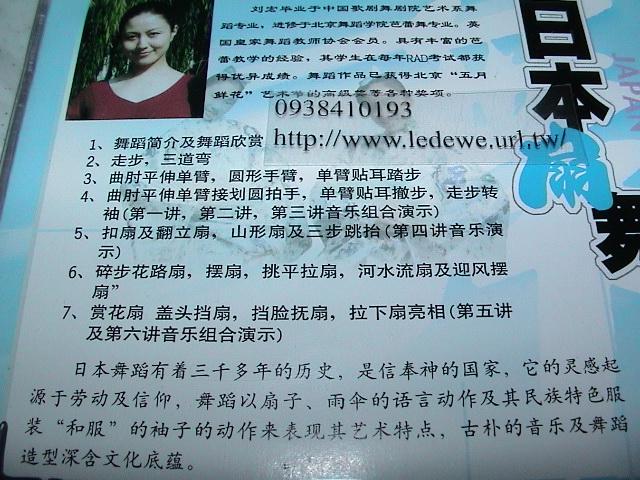 刘宏毕业于中国歌剧舞剧院艺术系舞
蹈专业，进修于北京舞蹈学院芭蕾舞专业。英
国皇家舞蹈教师协会会员。具有丰富的芭
蕾教学的经验，其学生在每年RAD考试都获
得优异成绩。舞蹈作品已获得北京“五月
鲜花”艺术节的高级奖等各种奖项。
0938410193
http://www.ledewe.url.tw/
1、舞蹈简介及舞蹈欣赏
2、走步，三道弯
3、曲肘平伸单臂，圆形手臂，单臂贴耳踏步
4、曲肘平伸单臂接划圆拍手，单臂贴耳撤步，走步转
袖(第一讲，第二讲，第三讲音乐组合演示)
5、扣扇及翻立扇，山形扇及三步跳抬(第四讲音乐演
示)
6、碎步花路扇，摆扇，挑平拉扇，河水流扇及迎风摆
扇”
7、赏花扇 盖头挡扇，挡脸抚扇，拉下扇亮相(第五讲
及第六讲音乐组合演示)
日本舞蹈有着三千多年的历史，是信奉神的国家，它的灵感起
源于劳动及信仰，舞蹈以扇子、雨伞的语言动作及其民族特色服
装“和服”的袖子的动作来表现其艺术特点，古朴的音乐及舞蹈
造型深含文化底蕴。
日本扇舞
JAPAN